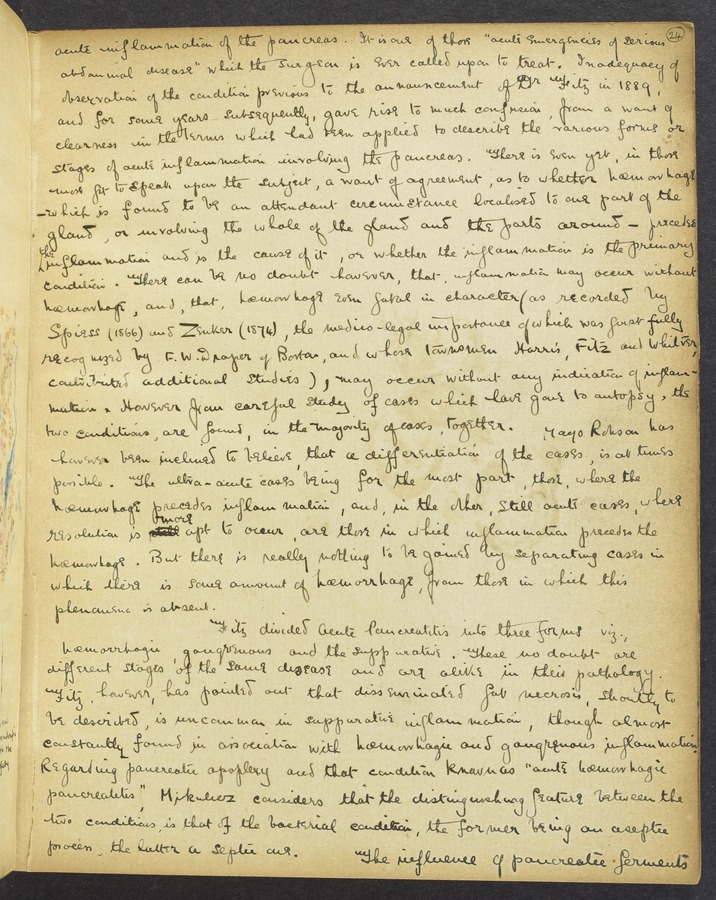 24
acute inflammation of the pancreas. It is one of those "acute emergencies of serious
abdominal disease" which the surgeon is ever called upon to treat. Inadequacy of
observation of the condition previous to the announcement of Dr Fitz in 1889,
and for some years subsequently, gave rise to much confusion, from a want of
clearness in the terms which had been applied to describe the various forms or
stages of acute inflammation involving the pancreas. There is even yet, in those
most fit to speak upon the subject, a want of agreement, as to whether hæmorrhage
- which is found to be an attendant circumstance localised to one part of the
gland, or involving the whole of the gland and the parts around - precedes
the inflammation and is the cause of it, or whether the inflammation is the primary
condition. There can be no doubt however, that, inflammation may occur without
hæmorrhage, and, that, hæmorrhage even fatal in character (as recorded by
Spiess (1866) and Zenker (1874), the medico-legal importance of which was first fully
recognized by F. W. Draper of Boston, and whose townsmen Harris, Fitz and Whitney,
contributed additional studies), may occur without any indication of inflam-
mation. However from careful study of cases which have gone to autopsy, the
two conditions, are found, in the majority of cases, together. Mayo Robson has
however been inclined to believe, that a differentiation of the cases, is at times
possible. The ultra-acute cases being for the most part, those, where the
hæmorrhage precedes inflammation, and, in the other, still acute cases, where
resolution is more apt to occur, are those in which inflammation precedes the
hæmorrhage. But there is really nothing to be gained by separating cases in
which there is some amount of hæmorrhage, from those in which this
phenomena is absent.
Fitz divided Acute Pancreatitis into three forms viz.,
hæmorrhagic, gangrenous and the suppurative. These no doubt are
different stages of the same disease and are alike in their pathology.
Fitz, however, has pointed out that disseminated fat necrosis, shortly to
be described, is uncommon in suppurative inflammation, though almost
constantly found in association with hæmorrhagic and gangrenous inflammation.
Regarding pancreatic apoplexy and that condition known as "acute hæmorrhagic
pancreatitis", Mikulicz considers that the distinguishing feature between the
two conditions, is that of the bacterial condition, the former being an aseptic
process, the latter a septic one. The influence of pancreatic ferments